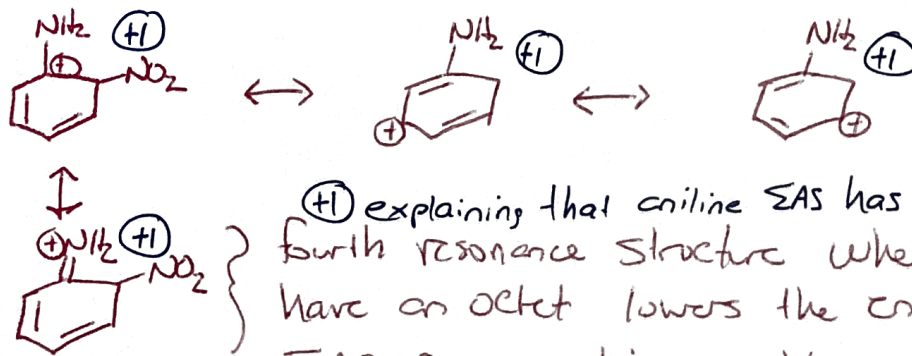 NH₂ +1 NH₂ +1 NH₂ +1
+ NO₂
+ +
+1 explaining that aniline EAS has
+ NH₂ +1 fourth resonance structure whe
NO₂ have an octet lowers the en